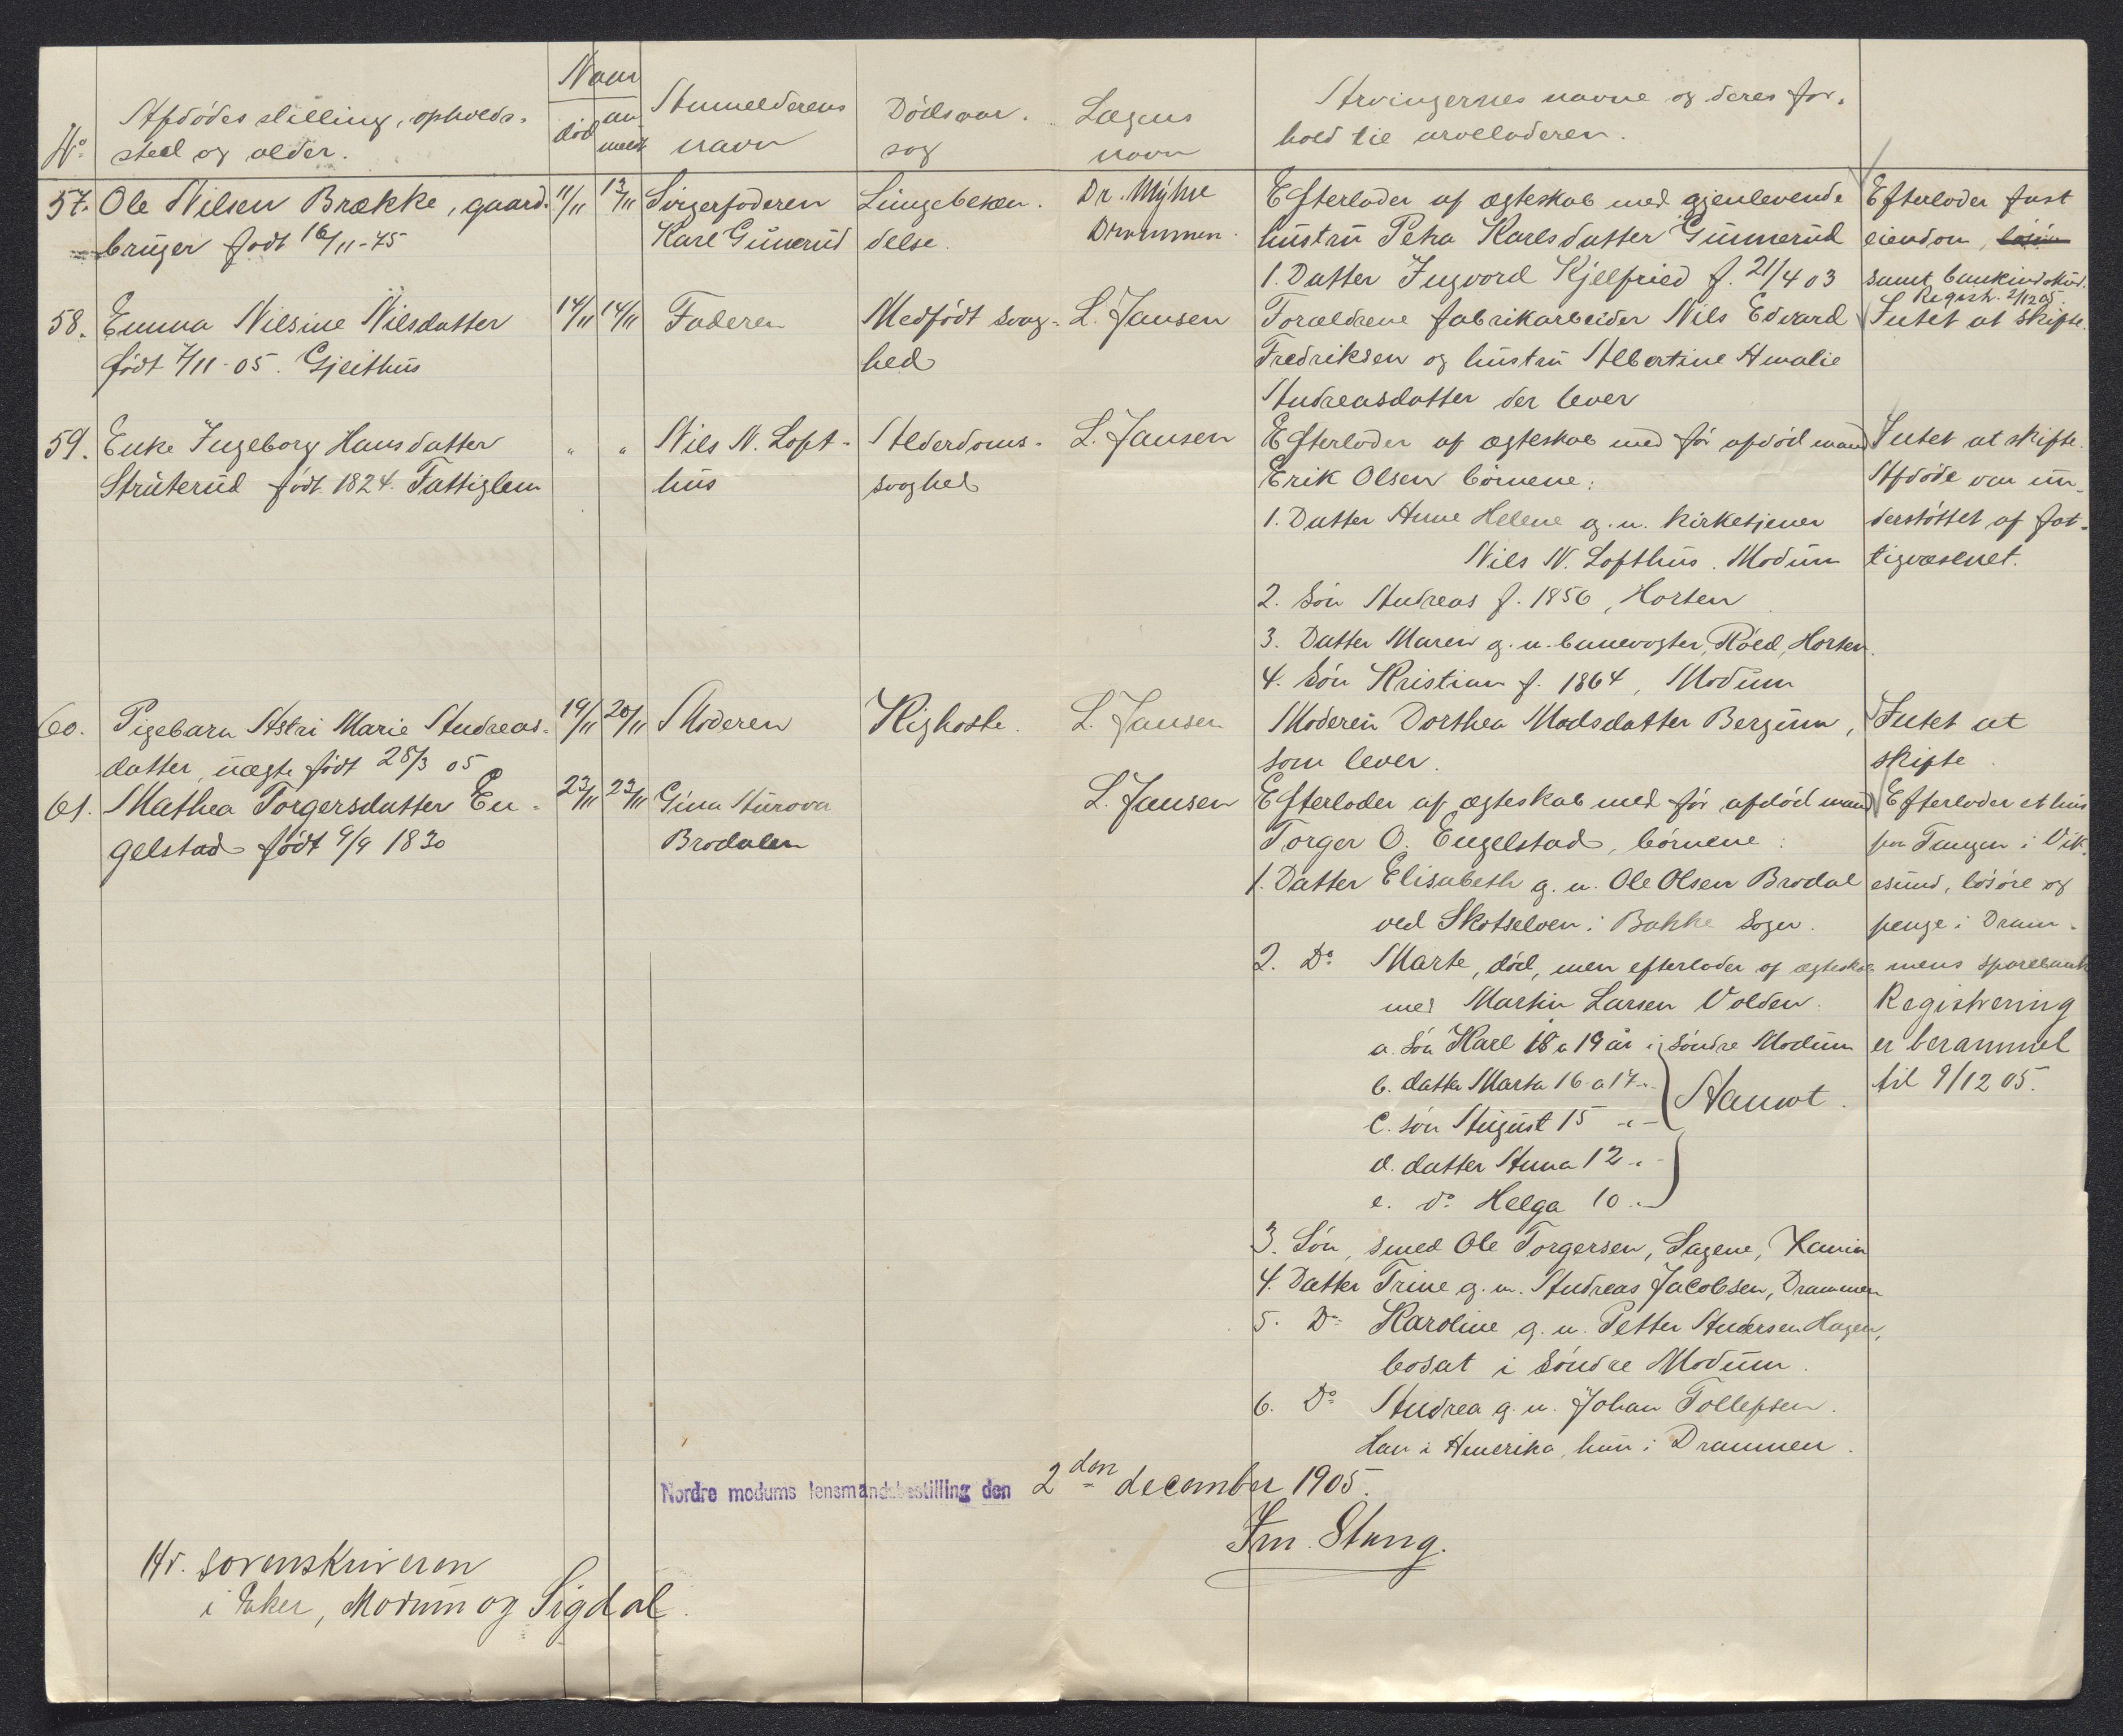 Naar
No Afdödes stilling, opholds- död an Anmelderens Dödsaar- Lægens Arvingernes navne og deres for-
sted og alder. meldt navn sag navn hold til arveladeren.
57. Ole Nilsen Brække, gaard- 11/11 13/11 Svigerfaderen Lungebetæn- Dr. Myhre Efterlader af ægteskab med gjenlevende Efterlader fast
bruger født 16/11-75 Karl Gunerud delse. Drammen. hustru Petra Karlsdatter Gunnerud eiendom, løsøre
1. Datter Ingvord Kjelfried f. 21/4 03 samt bankindskud.
Registr. 2/12 05.
58. Emma Nilsine Nilsdatter 14/11 14/11 Faderen Medfödt svag- L. Jansen Forældrene fabrikarbeider Nils Edvard Intet at skifte.
födt 7/11-05. Gjeithus hed Fredriksen og hustru Albertine Amalie
Andreasdatter der lever
59. Enke Ingeborg Hansdatter " " Nils N. Loft- Alderdoms- L. Jansen Efterlader af ægteskab med før afdöd mand Intet at skifte.
Struterud födt 1824. Fattiglem hus svaghed Erik Olsen börnene: Afdöde var un-
1. Datter Anne Helene g. m. kirketjener derstöttet af fat-
Nils N. Lofthus. Modum tigvæsenet.
2. Sön Andreas f. 1856, Horten
3. Datter Maren g. m. banevogter, Röed, Horten.
4. Sön Kristian f. 1864, Modum
60. Pigebarn Astri Marie Andreas- 19/11 20/11 Moderen Kighoste. L. Jansen Moderen Dorthea Madsdatter Bergum, Intet at
datter, uægte födt 28/3 05 som lever. skifte.
61. Mathea Torgersdatter En- 23/11 23/11 Gina Aurora L. Jansen Efterlader af ægteskab med før afdöd mand Efterlader et hus
gelstad födt 9/9 1830 Brodalen Torger O. Engelstad, börnene: paa Tangen i Vik-
1. Datter Elisabeth g. m. Ole Olsen Brodal esund, lösöre og
ved Skotselven i Bakke sogn. penge i Dram-
2. Do Marte, död, men efterlader af ægteskab mens sparebank
med Martin Larsen Volden. Registrering
a. Sön Karl 18 a 19 år i söndre Modum er berammet
b. datter Marta 16 a 17 " til 9/12 05.
c. sön August 15 " Aamot.
d. datter Anna 12 "
e. do Helga 10 "
3. Sön, smed Ole Torgersen, Sagene, Xania
4. Datter Trine g. m. Andreas Jacobsen, Drammen
5. Do Karoline g. m. Petter Andersen Hagen,
bosat i Söndre Modum.
6. Do Andrea g. m. Johan Tollefsen.
Han i Amerika, hun i Drammen.
Nordre modums lensmandsbestilling den 2den december 1905.
Fm. Stang.
Hr. sorenskriveren
i Eker, Modum og Sigdal.